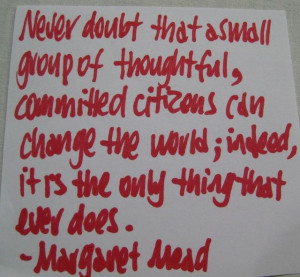 Never doubt that a small
group of thoughtful,
committed citizens can
change the world; indeed,
it is the only thing that
ever does.
- Margaret Mead